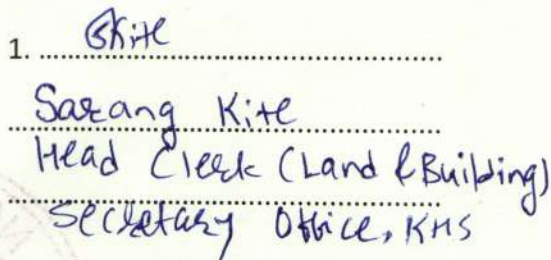 1. SKite
Sarang Kite
Head Clerk (Land & Building)
Secretary Office, KHS